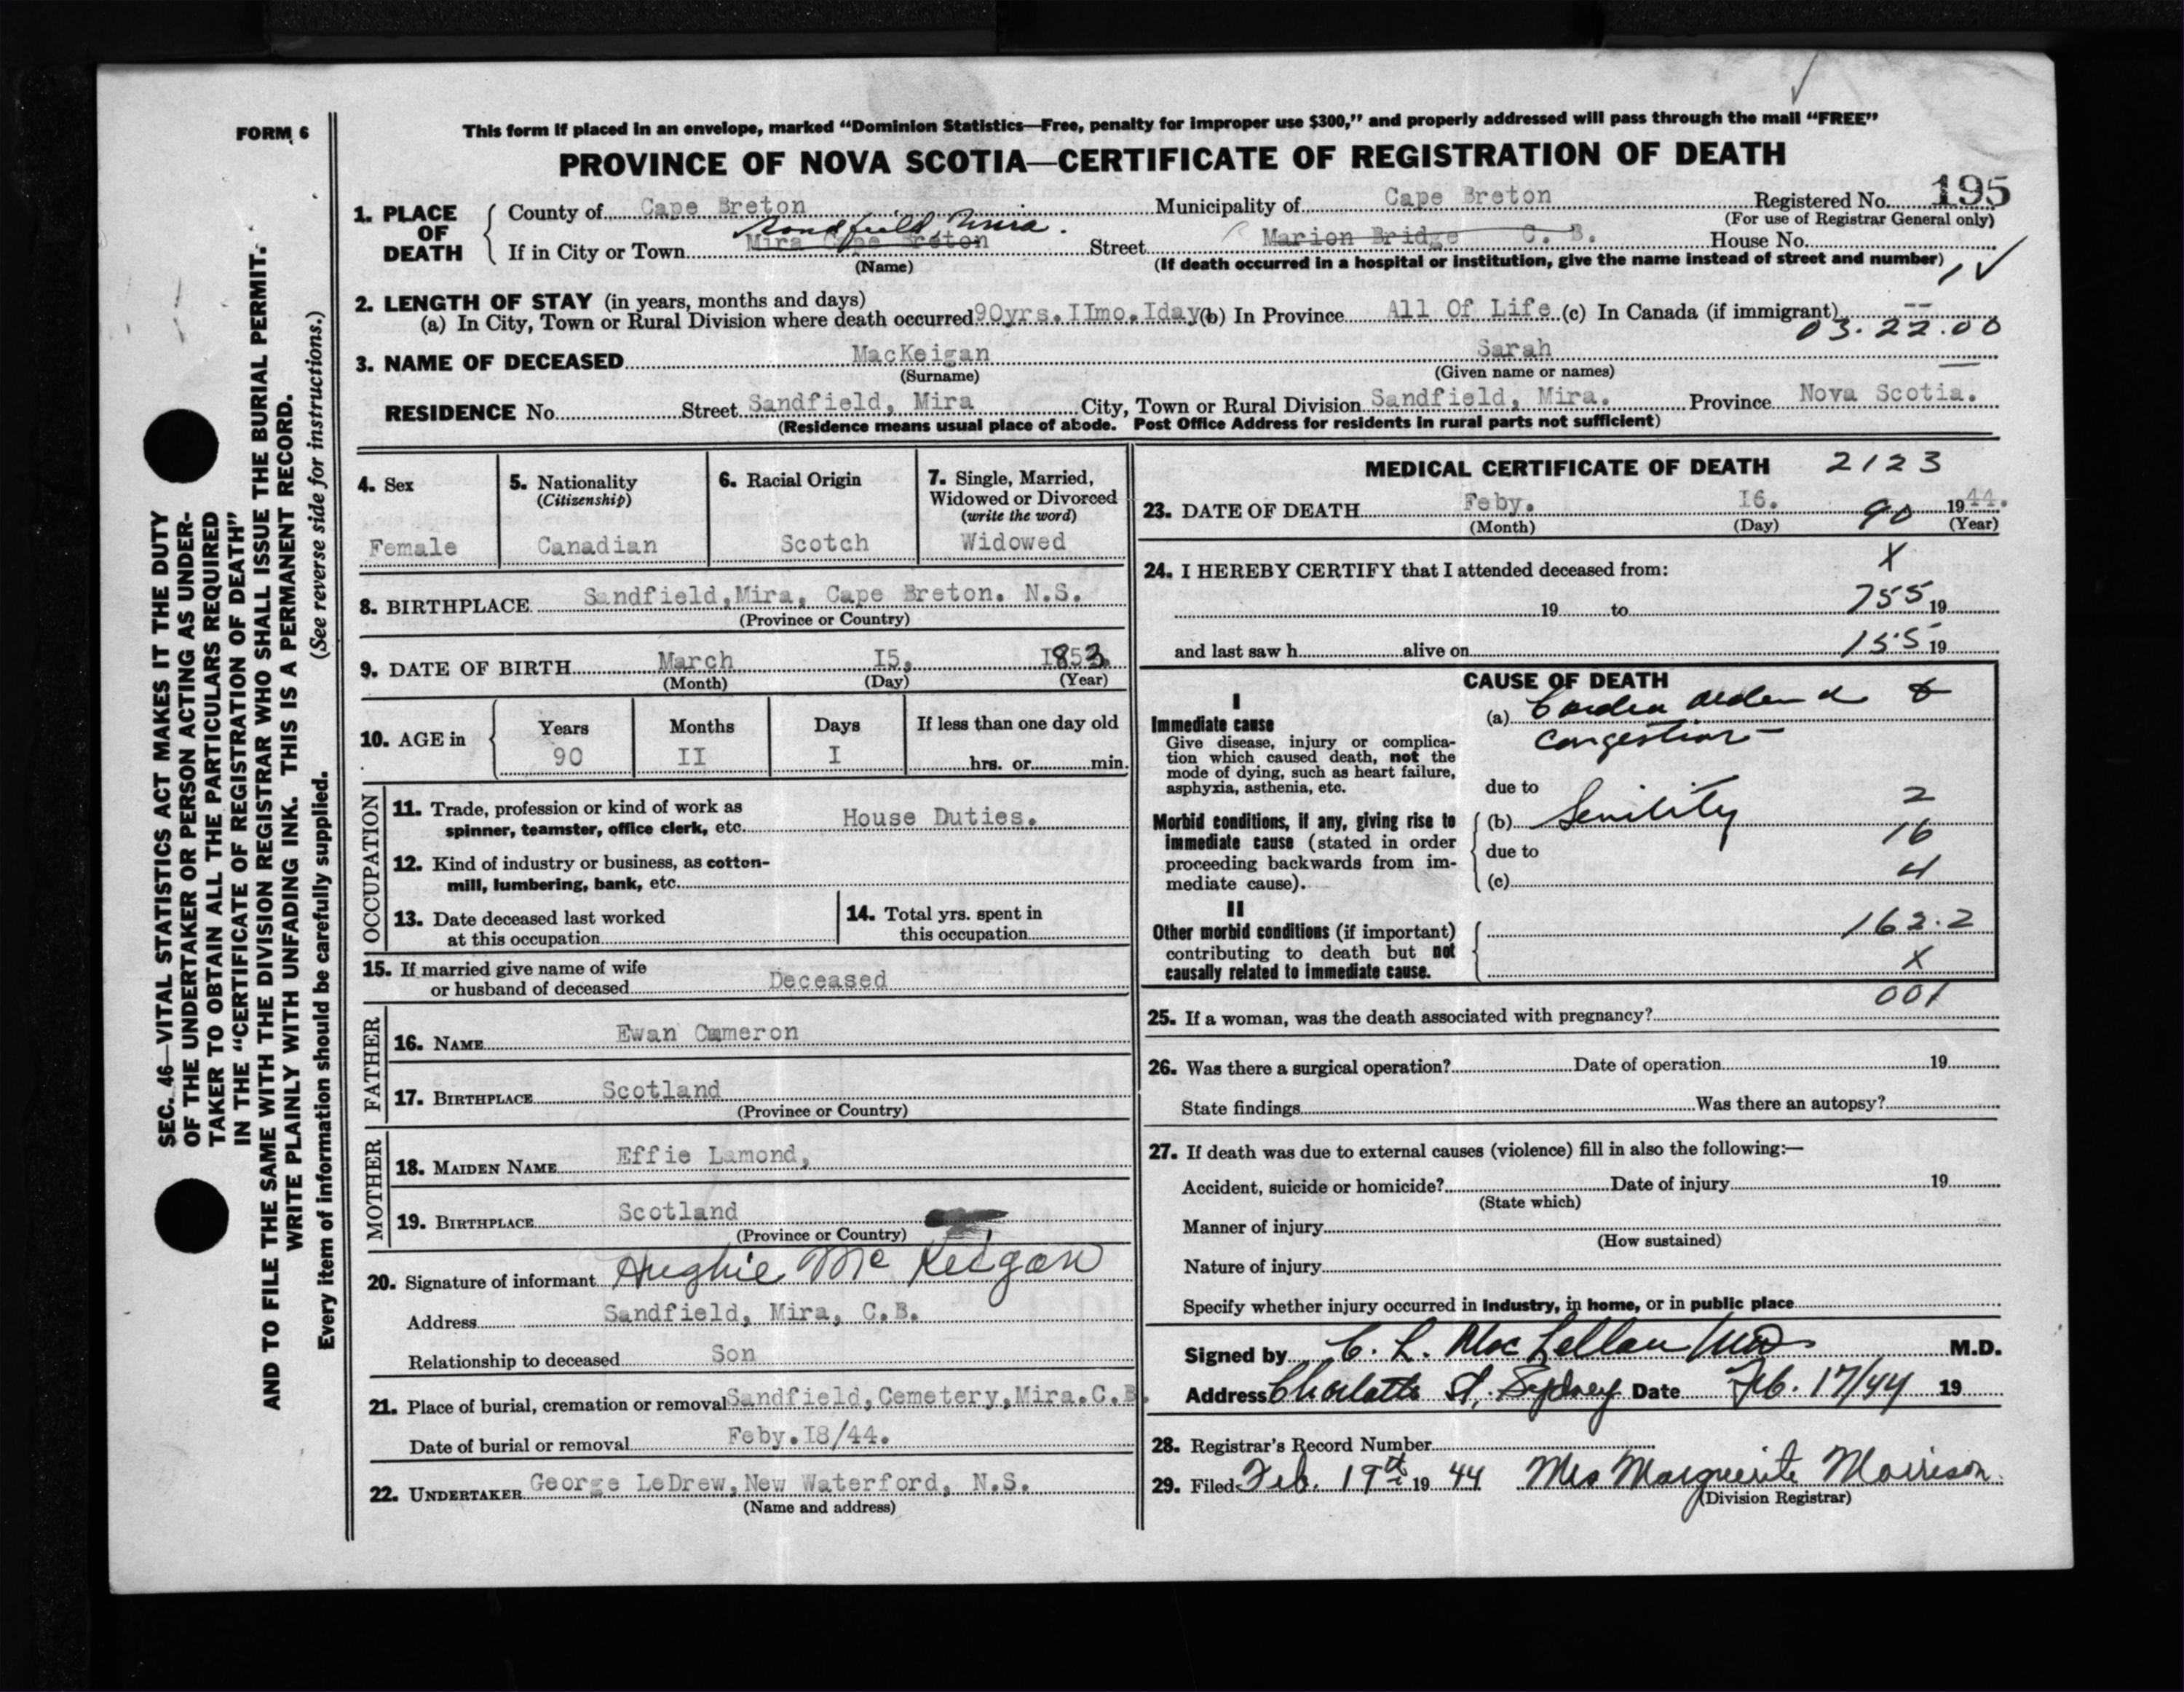 FORM 6
This form if placed in an envelope, marked “Dominion Statistics—Free, penalty for improper use $300,” and properly addressed will pass through the mail “FREE”
PROVINCE OF NOVA SCOTIA—CERTIFICATE OF REGISTRATION OF DEATH
1. PLACE OF DEATH
County of Cape Breton Municipality of Cape Breton Registered No. 195
(For use of Registrar General only)
Sandfield, Mira.
If in City or Town Mira Cape Breton Street Marion Bridge C. B. House No.
(Name) (If death occurred in a hospital or institution, give the name instead of street and number)
2. LENGTH OF STAY (in years, months and days)
(a) In City, Town or Rural Division where death occurred 90yrs. IImo. Iday (b) In Province All Of Life (c) In Canada (if immigrant) --
03.22.00
3. NAME OF DECEASED MacKeigan Sarah
(Surname) (Given name or names)
RESIDENCE No. Street Sandfield, Mira City, Town or Rural Division Sandfield, Mira. Province Nova Scotia.
(Residence means usual place of abode. Post Office Address for residents in rural parts not sufficient)
4. Sex
Female
5. Nationality
(Citizenship)
Canadian
6. Racial Origin
Scotch
7. Single, Married,
Widowed or Divorced
(write the word)
Widowed
8. BIRTHPLACE Sandfield, Mira, Cape Breton. N.S.
(Province or Country)
9. DATE OF BIRTH March I5, I853
(Month) (Day) (Year)
10. AGE in
Years Months Days If less than one day old
90 II I hrs. or min.
OCCUPATION
11. Trade, profession or kind of work as
spinner, teamster, office clerk, etc. House Duties.
12. Kind of industry or business, as cotton-
mill, lumbering, bank, etc.
13. Date deceased last worked
at this occupation
14. Total yrs. spent in
this occupation
15. If married give name of wife
or husband of deceased Deceased
FATHER
16. NAME Ewan Cameron
17. BIRTHPLACE Scotland
(Province or Country)
MOTHER
18. MAIDEN NAME Effie Lamond,
19. BIRTHPLACE Scotland
(Province or Country)
20. Signature of informant Hughie Mc Keigan
Address Sandfield, Mira, C.B.
Relationship to deceased Son
21. Place of burial, cremation or removal Sandfield, Cemetery, Mira. C.B.
Date of burial or removal Feby. I8/44.
22. UNDERTAKER George LeDrew, New Waterford, N.S.
(Name and address)
MEDICAL CERTIFICATE OF DEATH 2123
23. DATE OF DEATH Feby. I6. 90 1944.
(Month) (Day) (Year)
X
24. I HEREBY CERTIFY that I attended deceased from:
19 to 755 19
and last saw h alive on 155 19
CAUSE OF DEATH
I
Immediate cause
Give disease, injury or complica-
tion which caused death, not the
mode of dying, such as heart failure,
asphyxia, asthenia, etc.
(a)
congestion
due to
Morbid conditions, if any, giving rise to
immediate cause (stated in order
proceeding backwards from im-
mediate cause).
2
(b) Senility
16
due to
4
(c)
II
Other morbid conditions (if important)
contributing to death but not
causally related to immediate cause.
162.2
X
001
25. If a woman, was the death associated with pregnancy?
26. Was there a surgical operation? Date of operation 19
State findings Was there an autopsy?
27. If death was due to external causes (violence) fill in also the following:—
Accident, suicide or homicide? Date of injury 19
(State which)
Manner of injury
(How sustained)
Nature of injury
Specify whether injury occurred in industry, in home, or in public place
Signed by C. L. MacLellan MD M.D.
Address Charlotte St. Sydney Date Feb. 17/44 19
28. Registrar's Record Number
29. Filed Feb. 19th 19 44 Mrs Marguerite Morrison
(Division Registrar)
SEC. 46—VITAL STATISTICS ACT MAKES IT THE DUTY
OF THE UNDERTAKER OR PERSON ACTING AS UNDER-
TAKER TO OBTAIN ALL THE PARTICULARS REQUIRED
IN THE “CERTIFICATE OF REGISTRATION OF DEATH”
AND TO FILE THE SAME WITH THE DIVISION REGISTRAR WHO SHALL ISSUE THE BURIAL PERMIT.
WRITE PLAINLY WITH UNFADING INK. THIS IS A PERMANENT RECORD.
Every item of information should be carefully supplied. (See reverse side for instructions.)